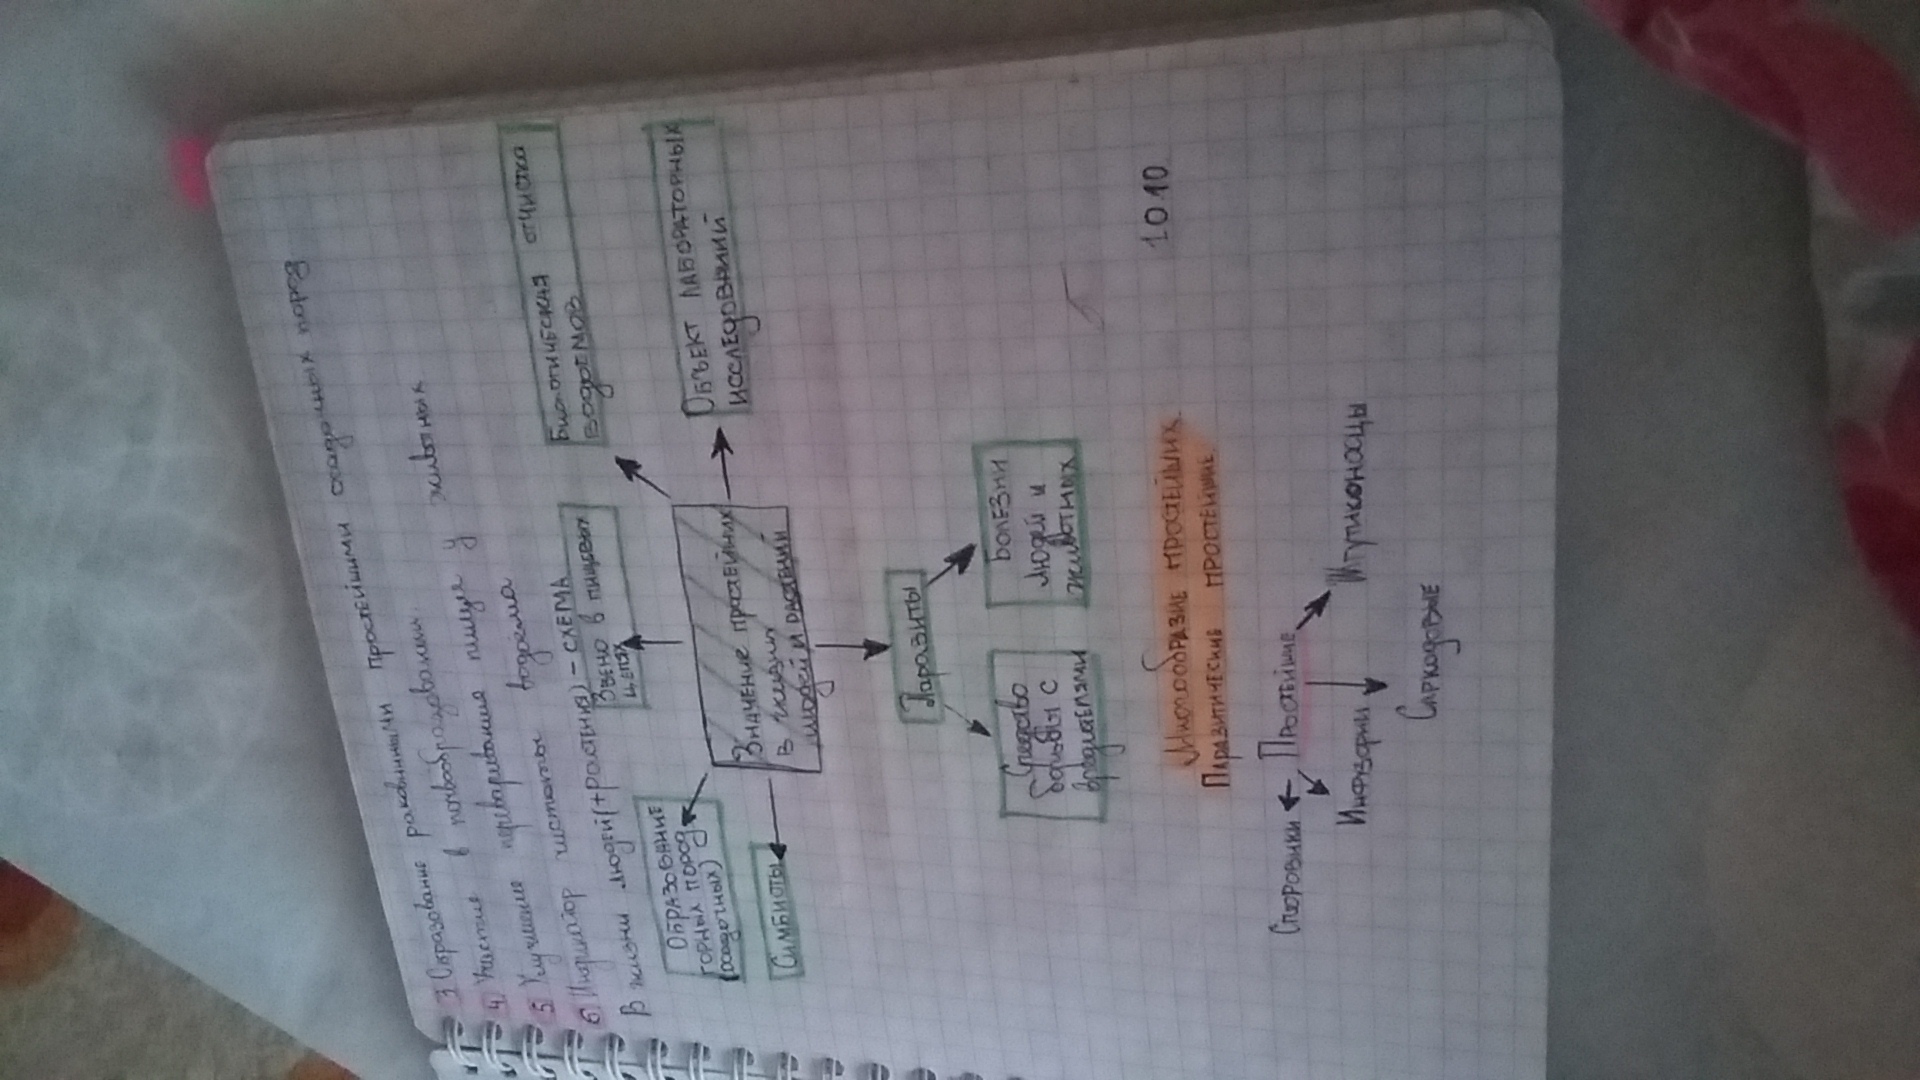 3. Образование раковинными простейшими осадочных пород
4. Участие в почвообразовании.
5. Улучшение переваривание пищи у животных
6. Индикатор чистоты водоёма
В жизни людей(+растения) - СХЕМА
Звено в пищевых
цепях
Биологическая отчистка
водоёмов
ОБРАЗОВАНИЕ
горных пород
(осадочных)
Объект лабораторных
исследований
Значение простейших
в жизни
людей и растений
Симбиоты
Паразиты
Средство
борьбы с
вредителями
Болезни
людей и
животных
10.10
Многообразие простейших.
Паразитические простейшие
Споровики
Простейшие
Жгутиконосцы
Инфузории
Саркодовые